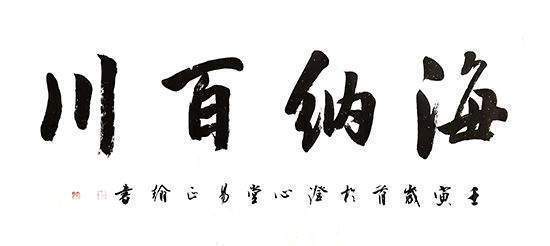 海纳百川
壬寅岁首於澄心堂易正翰书